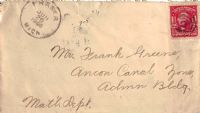 MICH.
Mr. Frank Greene,
Ancon Canal Zone,
Admn Bldg.
Mat'l. Dept.